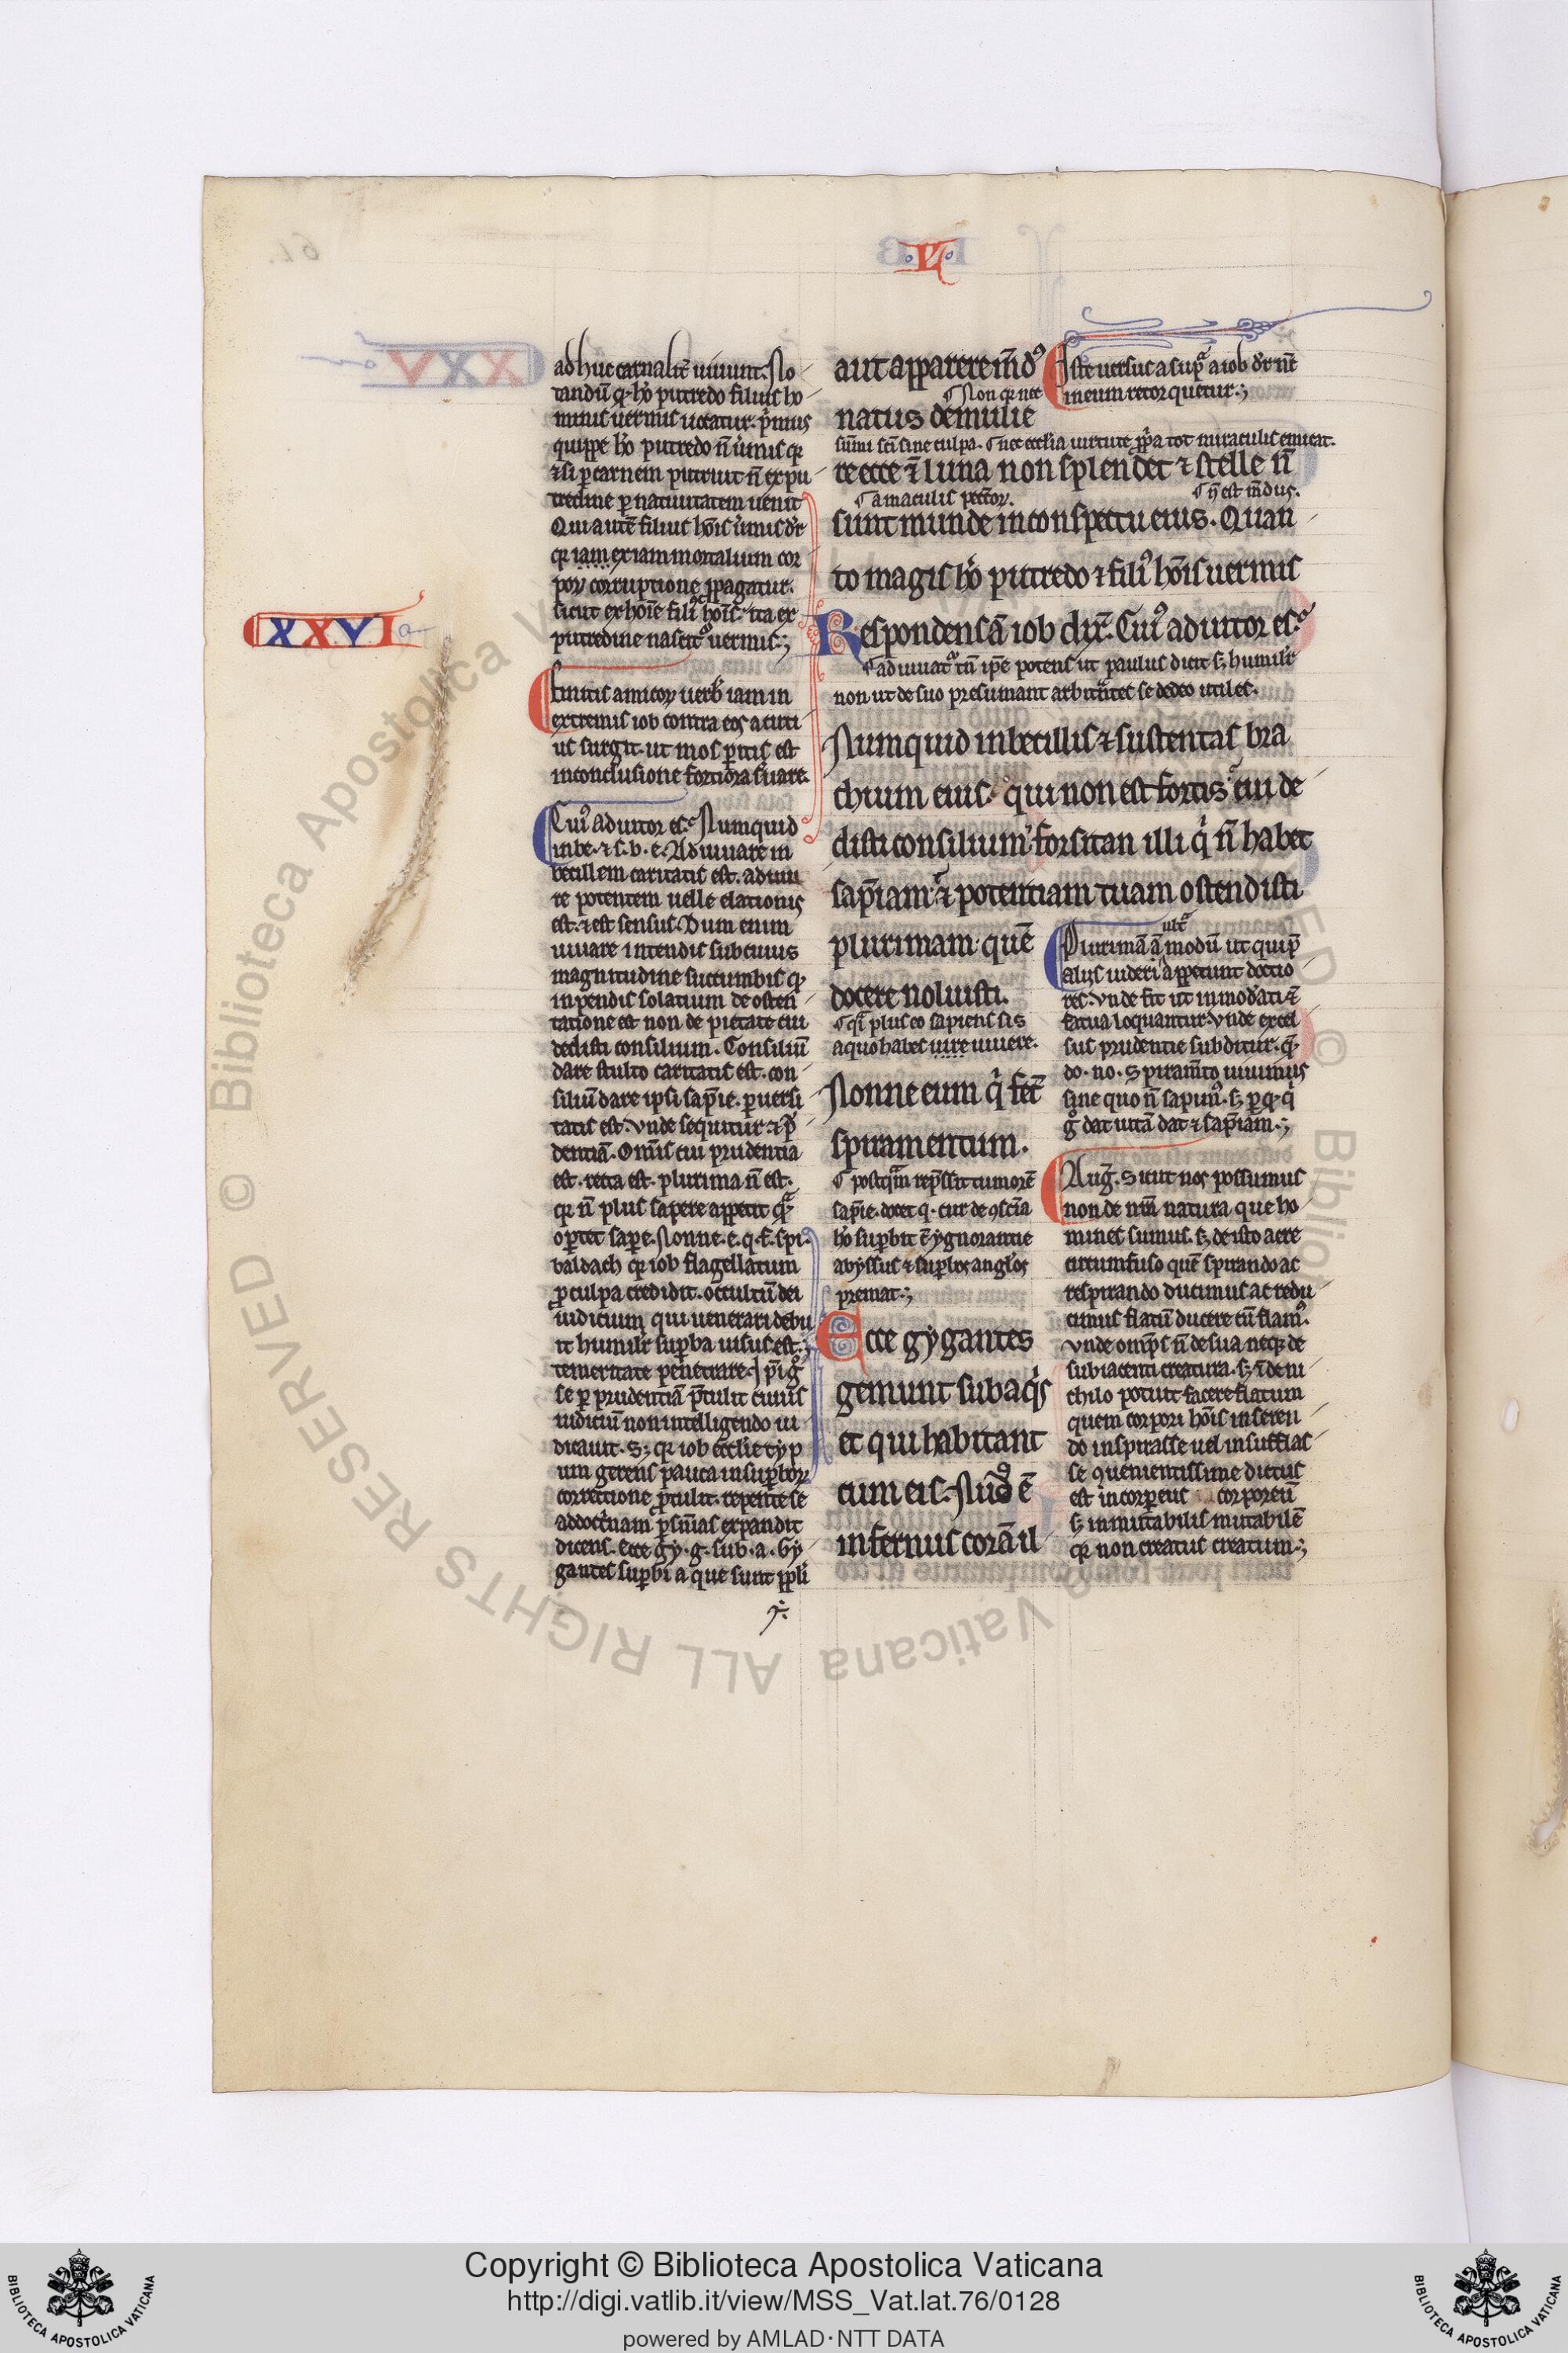 .V.
adhuc carnalit̄ uiuunt. No
tandū q̄ hō putredo filius ho
minis uermis uocatur. p̄mus
quippe hō putredo n̄ u̓mis q̄
⁊ si p carnem putruit n̄ ex pu
tredine p natiuitatem uenit
Qui autē filius hōis u̓mis dr̄
q̄ iam ex iam mortalium cor
porꝝ corruptione ꝓpagatur.
sicut ex hoīe filiꝰ hoīs. ita ex
putredine nascitᷣ uermis.;
XXVI
Finitis amicorꝝ uerb̓ iam in
extremis iob contra eos acuti
us surgit. ut mos p̄itis est
in conclusione fortiora s̓uare.
Cuiꝰ adiutor es. Numquid
inbe. ⁊ s. b. e. Adiuuare in
becillem caritatis est. adiuua
re potentem uelle elationis
est. ⁊ est sensus. Dum enim
iuuare intendis sub cuius
magnitudine succumbis q̄
inpendis solatium de osten
tatione est non de pietate cui
dedisti consilium. Consiliū
dare stulto caritatis est. con
siliū dare ipsi sap̄ie. puersi
tatis est. Vnde sequitur ⁊ p̄
dentiā. Om̄is cui prudentia
est. recta est. plurima n̄ est.
q̄ n̄ plus sapere appetit q̄
oportet sape. Nonne. e. q. f. spi.
baldach q̄ iob flagellatum
ꝓ culpa credidit. occultū dei
iudicium qui uenerari debu
it humilr̄ supba uisus est.;
temeritate penetrare.
se p prudentiā p̄tulit cuius
iudiciū non intelligendo iu
dicauit. S; q̄ iob ecclīe typ
um gerens pauca in supborꝝ
correctione ꝓtulit. repente se
ad doct̓nam ꝓ s̄mas expandit
dicens. Ecce gy. g. sub. a. Gy
gantes supbi aque sunt ppli
aut apparere m̄dꝰ
Non q̄ nec
natus de mulie
sum̄i sc̄i sine culpa. nec ecclesia uirtute ꝓpa tot miraculis emicat.
re ecce ē luna non splendet ⁊ stelle n̄
a maculis peccorꝝ. n̄ est m̄dus.
sunt munde in conspectu eius. Quan
to magis hō putredo ⁊ filiꝰ hōis uermis
Respondens ā iob dix̄. Cuiꝰ adiutor es.
adiuuatᷣ tn̄ ipe potens ut paulus dicit s; humilr̄
non ut de suo presumant arbitr̄antes se deo utiles.
Numquid inbecillis ⁊ sustentas bra
chium eius. qui non est fortis cui de
disti consilium. forsitan illi q̓ n̄ habet
sap̄iam. ⁊ potentiam tuam ostendisti
plurimam. quē
docere noluisti.
q̄ plus eo sapiens sis
a quo habes uire uiuere.
Nonne eum q̓ fec̄
spiramentum.
postq̄m rep̄ssit tumorē
sap̄ie. docet q. cur de ꝯsciā
hō supbit ē ygnorantie
abyssus ⁊ suplos angl̓os
premat.;
Ecce gygantes
gemunt sub aq̓s
et qui habitant
cum eis. Nudꝰ ē
infernus corā il
Iste uersus a supᷓ a iob dr̄ nc̄
in eum retorquetur.;
ultᷓ
Plurimā ā modū ut qui p̄
alijs uideri appetunt doctio
res. Vnde fit ut inmod̓ati ⁊
fatua loquantur. Vnde excel
sus prudentie subditur. q̄
do. no. Spiram̄to uiuimus
sine quo n̄ sapimꝰ. s; p q̄ q̓
g dat uitā dat ⁊ sap̄iam.;
Aug̃. Sicut nos possumus
non de nr̄a natura que ho
mines sumus. s; de isto aere
circumfuso quē spirando ac
respirando ducimus ac redu
cimus flatū ducere cū flamꝰ.
Vnde omp̄s n̄ de sua neq; de
subiacenti creatura. s; ⁊ de ni
chilo potuit facere flatum
quem corpori hōis inseren
do inspirasse uel insufflas
se ꝯuenientissime dictus
est incorpeus corporeū
s; inmutabilis mutabilē
q̄ non creatus creatum.;
Copyright © Biblioteca Apostolica Vaticana
http://digi.vatlib.it/view/MSS_Vat.lat.76/0128
powered by AMLAD·NTT DATA
BIBLIOTECA APOSTOLICA VATICANA
BIBLIOTECA APOSTOLICA VATICANA
© Biblioteca Apostolica Vaticana ALL RIGHTS RESERVED